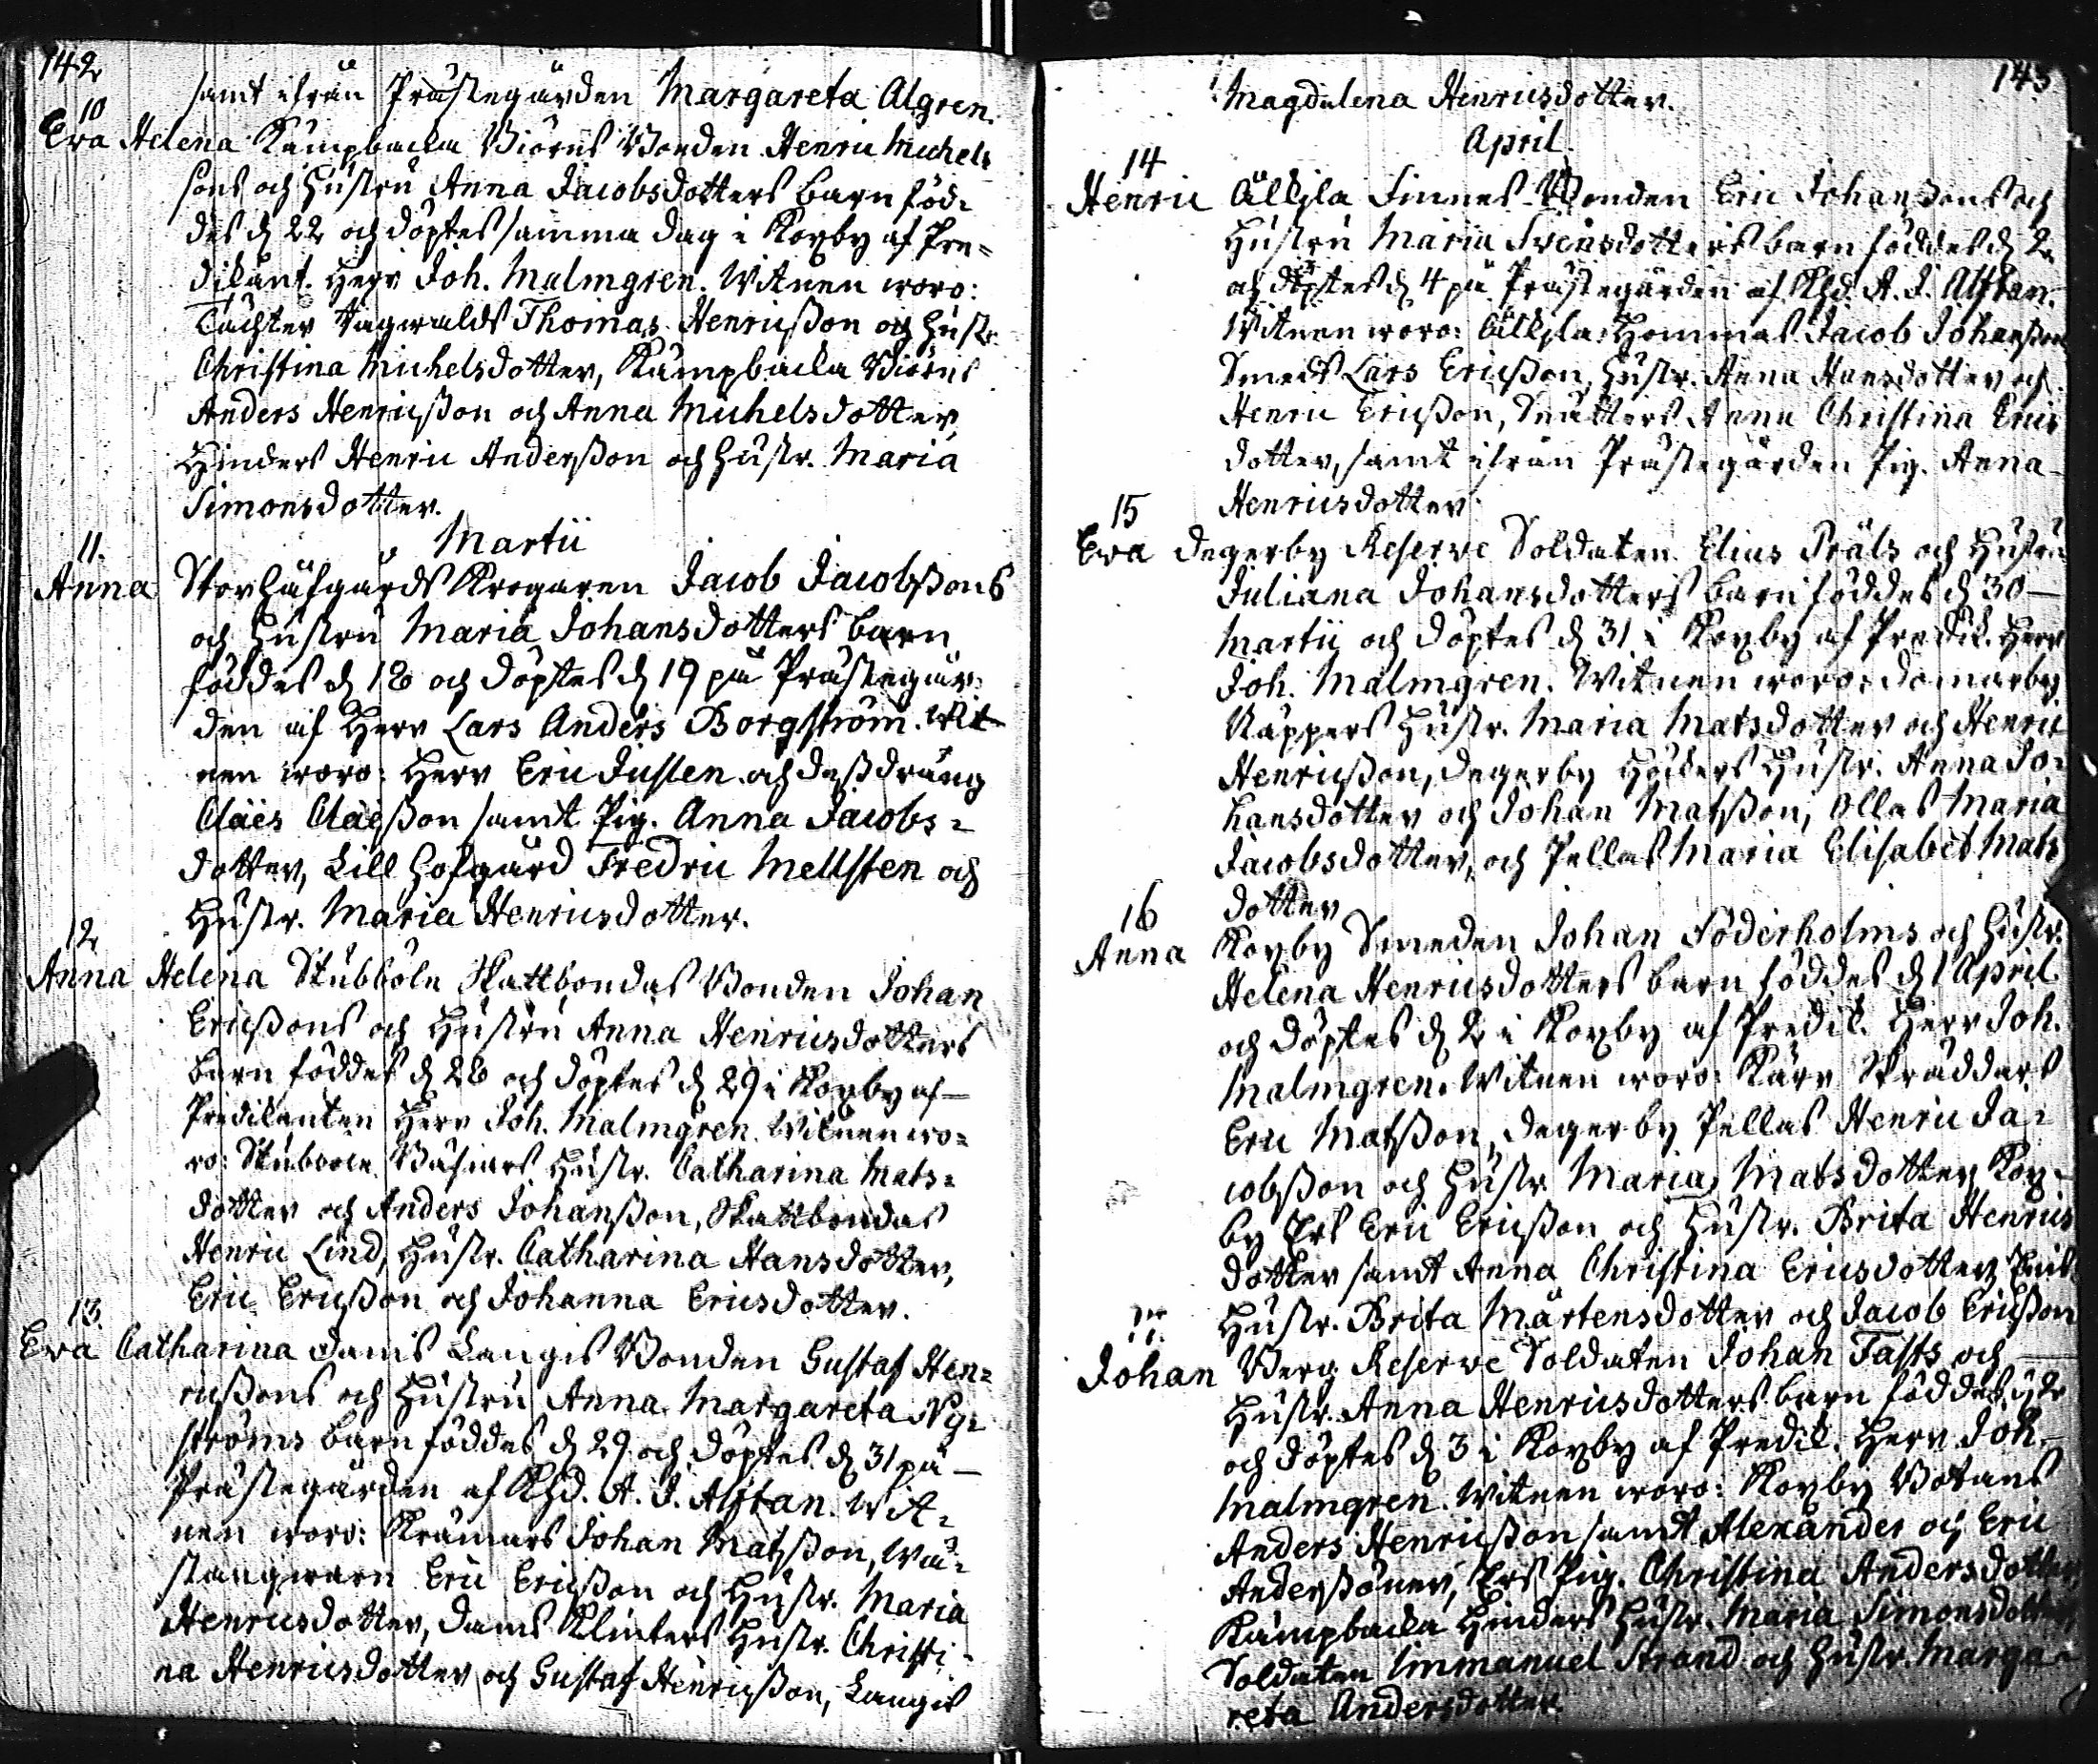 142
samt ifrån Prästegården Margareta Algren.
10
Eva Helena Kämpbacka Biörns Bonden Henric Michels
sons och Hustru Anna Jacobsdotters barn föd-
des d 22 och döptes samma dag i Korby af Pre-
dikant. Herr Joh. Malmgren. Witnen woro:
Tächter Thomas Henricsson och Hustr.
Christina Michelsdotter, Kämpbacka Biörns
Anders Henricsson och Anna Michelsdotter,
Hinders Henric Andersson och Hustr. Maria
Simonsdotter.
Martii
11.
Anna Storhåfgårds Krogaren Jacob Jacobssons
och Hustru Maria Johansdotters barn
föddes d 18 och döptes d 19 på Prästegår-
den af Herr Lars Anders Borgström. Wit-
nen woro: Herr Eric Justen och dess dräng
Claës Claësson samt Pig. Anna Jacobs=
dotter, Lill Hofgård Fredric Mellsten och
Hustr. Maria Henricsdotter.
12
Anna Helena Stubböle Skattbondas Bonden Johan
Ericssons och Hustru Anna Henricsdotters
barn föddes d 28 och döptes d 29 i Korby af
Predikanten Herr Joh. Malmgren. Witnen wo=
ro: Stubböle Hustr. Catharina Mats=
dotter och Anders Johansson, Skattbondas
Henric Lind, Hustr. Catharina Hansdotter,
Eric Ericsson och Johanna Ericsdotter.
13.
Eva Catharina Dams Langis Bonden Gustaf Hen=
ricssons och Hustru Anna Margareta Ny=
ströms barn föddes d 29 och döptes d 31 på
Prästegården af Khd. A. J. Alftan. Wit=
nen woro: Krämars Johan Matsson, Wa-
Eric Ericsson och Hustr. Maria
Henricsdotter, Dams Klinkers Hustr. Christi-
na Henricsdotter och Gustaf Henricsson, Langis
143
Magdalena Henricsdotter.
April
14
Henric Älkjla Finnes Bonden Eric Johanssons och
Hustru Maria Svensdotters barn föddes d 2
och döptes d 4 på Prästegården af Khd. A. J. Alftan.
Witnen woro: Älkjla Hommas Jacob Johansson
Smeds Lars Ericsson, Hustr. Anna Hansdotter och
Henric Ericsson, Anna Christina Erics
dotter, samt ifrån Prästegården Pig. Anna
Henricsdotter
15
Eva Degerby Reserve Soldaten Elias Präls och Hustru
Juliana Johansdotters barn föddes d 30
Martii och döptes d 31 i Korby af Predik. Herr
Joh. Malmgren. Witnen woro: Domarby
Käppers Hustr. Maria Matsdotter och Henric
Henricsson, Degerby Hustr. Anna Jo-
hansdotter och Johan Matsson, Ollas Maria
Jacobsdotter, och Pellas Maria Elisabet Mats
dotter
16
Anna Korby Smeden Johan Söderholms och Hustr.
Helena Henricsdotters barn föddes d 1 April
och döptes d 2 i Korby af Predik. Herr Joh.
Malmgren. Witnen woro: Kärr Skräddars
Eric Matsson, Degerby Pellas Henric Ja-
cobsson och Hustr. Maria Matsdotter, Kor-
by Ers Eric Ericsson och Hustr. Brita Henrics
dotter samt Anna Christina Ericsdotter,
Hustr. Brita Mårtensdotter och Jacob Ericsson
17.
Johan Berg Reserve Soldaten Johan Fasts och
Hustr. Anna Henricsdotters barn föddes
och döptes d 3 i Korby af Predik. Herr Joh.
Malmgren. Witnen woro: Korby Botans
Anders Henricsson samt Alexander och Eric
Anderssöner, Ers Pig. Christina Andersdotter
Kämpbacka Hinders Hustr. Maria Simonsdotter
Soldaten Immanuel Strand och Hustr. Marga-
reta Andersdotter.